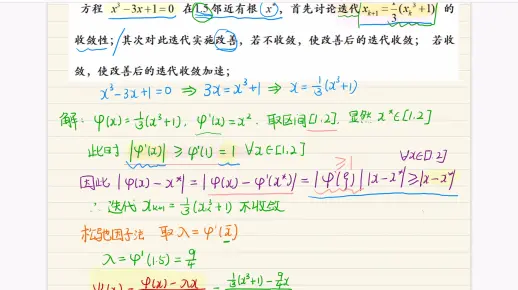 方程 x³-3x+1=0 在 1.5 邻近有根 x*，首先讨论迭代 x_{k+1}=1/3(x_k³+1) 的
收敛性；其次对此迭代实施改善，若不收敛，使改善后的迭代收敛； 若收
敛，使改善后的迭代收敛加速；
x³-3x+1=0 ⇒ 3x=x³+1 ⇒ x=1/3(x³+1)
解: φ(x)=1/3(x³+1), φ'(x)=x². 取区间[1.2], 显然 x*∈[1.2]
此时 |φ'(x)| ≥ φ'(1) = 1 ∀x∈[1.2]
≥1 ∀x∈[1.2]
因此 |φ(x)-x*| = |φ(x)-φ'(x*)| = |φ'(ξ)| |x-x*| ≥ |x-x*|
∴ 迭代 x_{k+1}=1/3(x_k³+1) 不收敛
松弛因子法 取 λ=φ'(x̄)
λ=φ'(1.5)=9/4
φ(x)-λx = 1/3(x³+1)-9/4x